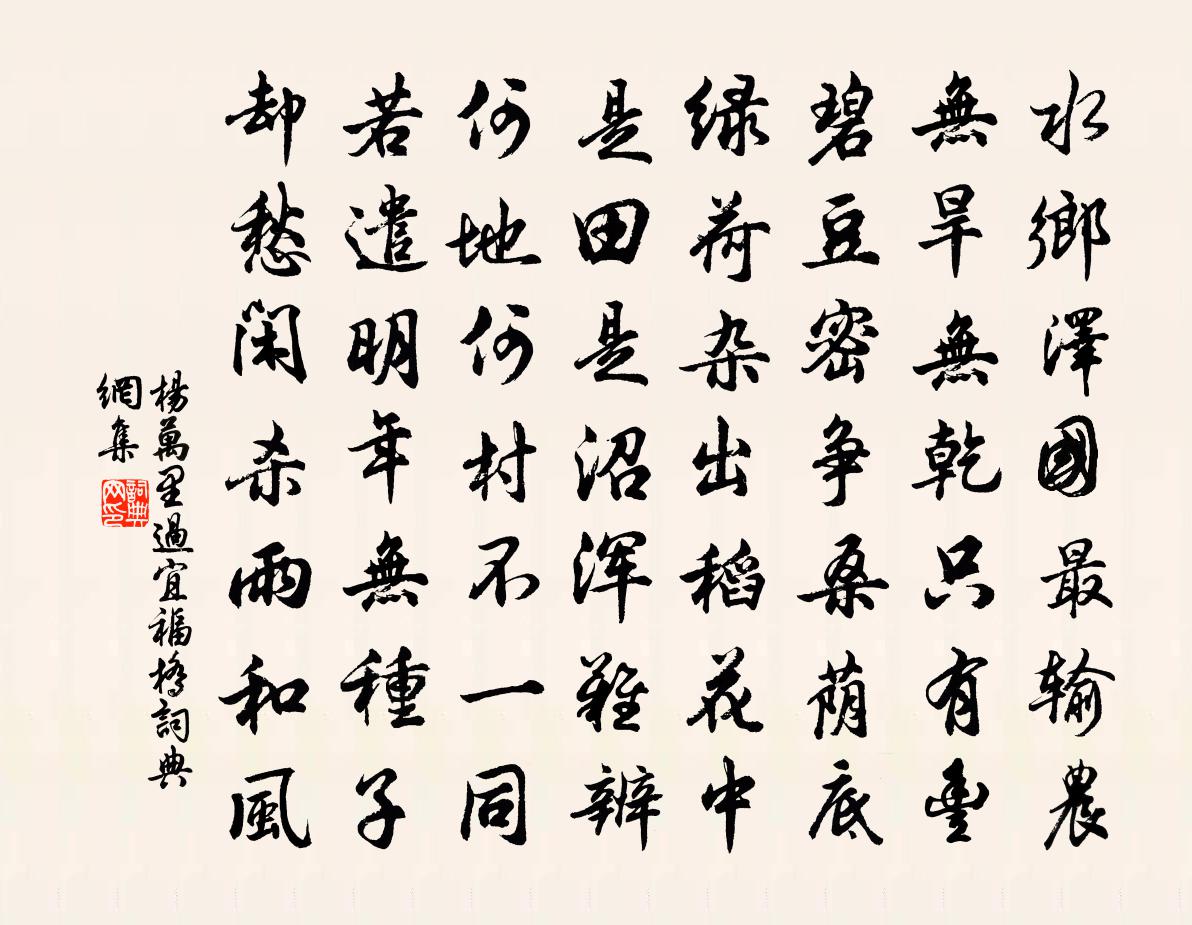 水鄉澤國最输農
無旱無乾只有豐
碧豆密争桑荫底
緑荷杂出稻花中
是田是沼浑難辨
何地何村不一同
若遣明年無種子
却愁闲杀雨和風
楊萬里過宜福橋詞典
網集
詞典
网印